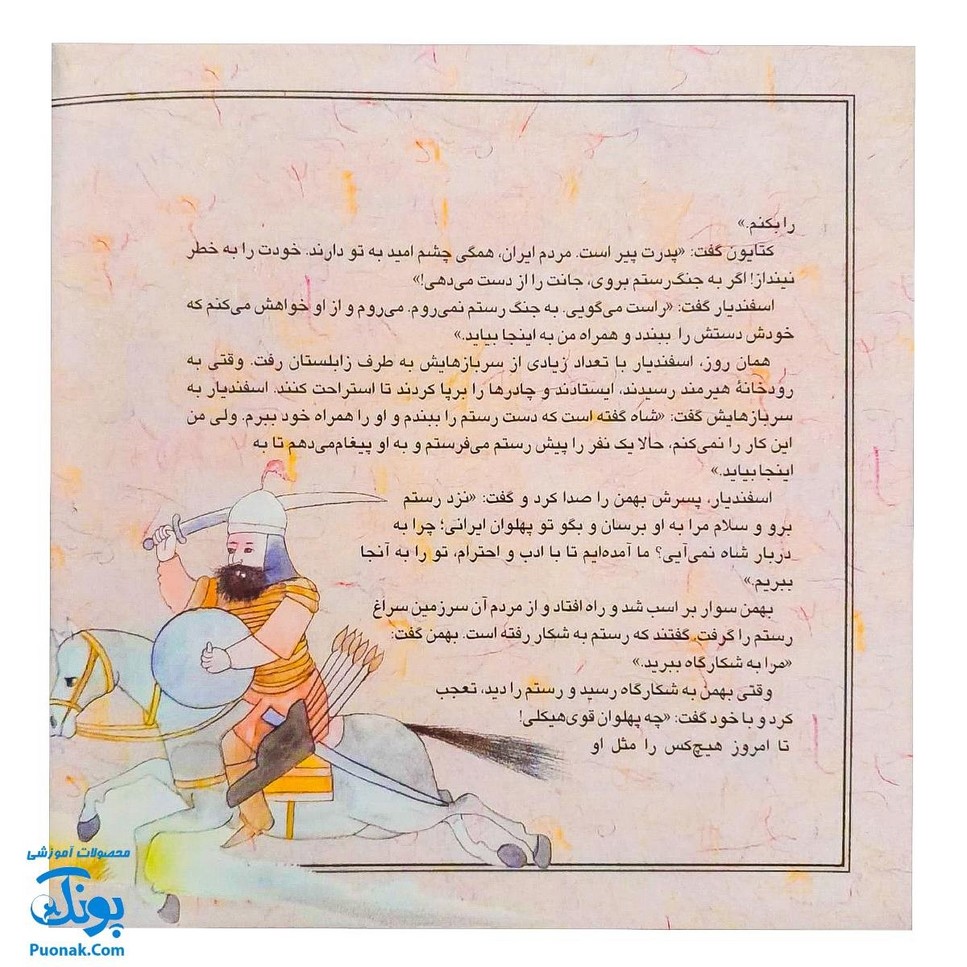 را بکنم.»
کتایون گفت: «پدرت پیر است. مردم ایران، همگی چشم امید به تو دارند. خودت را به خطر
نینداز! اگر به جنگ رستم بروی، جانت را از دست می‌دهی!»
اسفندیار گفت: «راست می‌گویی. به جنگ رستم نمی‌روم. می‌روم و از او خواهش می‌کنم که
خودش دستش را ببندد و همراه من به اینجا بیاید.»
همان روز، اسفندیار با تعداد زیادی از سربازهایش به طرف زابلستان رفت. وقتی به
رودخانهٔ هیرمند رسیدند، ایستادند و چادرها را برپا کردند تا استراحت کنند. اسفندیار به
سربازهایش گفت: «شاه گفته است که دست رستم را ببندم و او را همراه خود ببرم. ولی من
این کار را نمی‌کنم، حالا یک نفر را پیش رستم می‌فرستم و به او پیغام می‌دهم تا به
اینجا بیاید.»
اسفندیار، پسرش بهمن را صدا کرد و گفت: «نزد رستم
برو و سلام مرا به او برسان و بگو تو پهلوان ایرانی؛ چرا به
دربار شاه نمی‌آیی؟ ما آمده‌ایم تا با ادب و احترام، تو را به آنجا
ببریم.»
بهمن سوار بر اسب شد و راه افتاد و از مردم آن سرزمین سراغ
رستم را گرفت. گفتند که رستم به شکار رفته است. بهمن گفت:
«مرا به شکارگاه ببرید.»
وقتی بهمن به شکارگاه رسید و رستم را دید، تعجب
کرد و با خود گفت: «چه پهلوان قوی‌هیکلی!
تا امروز هیچ‌کس را مثل او
محصولات آموزشی
پونک
Puonak.Com